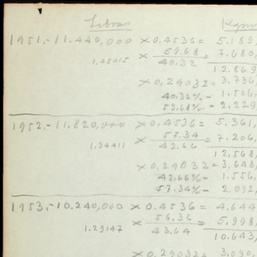 Libras Kgms
1951.- 11.440,000 × 0.4536 = 5.189
× 59.68 / 40.32 = 7.680,
1.48015 12.869
× 0.24032 = 3.736,
40.32% = 1.506,
59.68% = 2.229
1952.- 11.820,000 × 0.4536 = 5.361,
× 57.34 / 42.66 = 7.206,
1.34411 12.568,
× 0.29032 = 3.648
42.66% = 1.556,
57.34% = 2.092,
1953.- 10.240,000 × 0.4536 = 4.644
× 56.36 / 43.64 = 5.998,
1.29147 10.643,
× 0.29032 = 3.090,